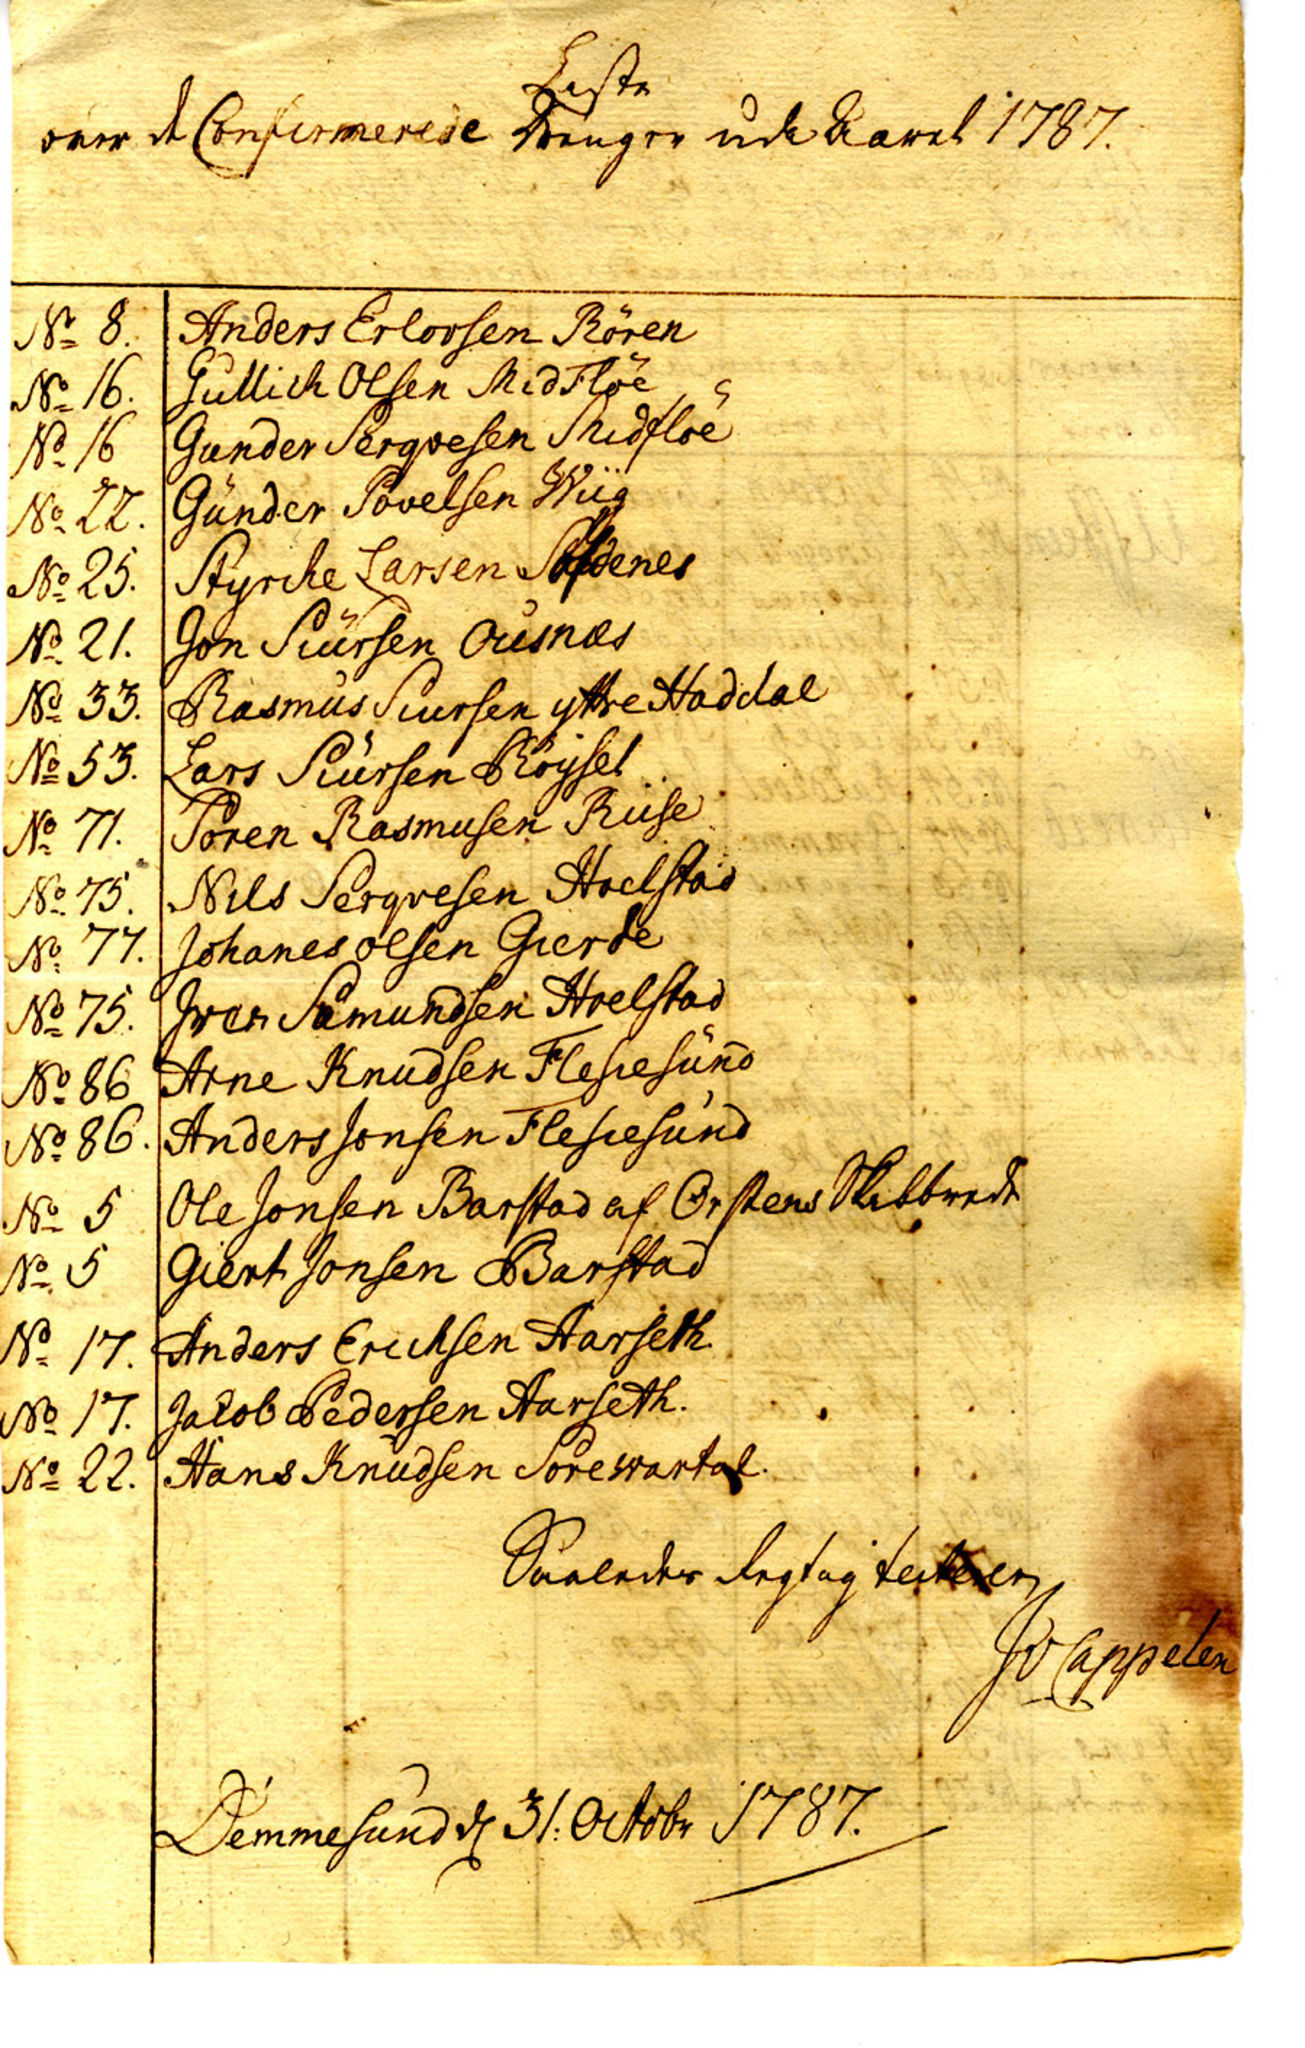 Liste
over de Confirmerede Drenge udi Aaret 1787.
No 8. Anders Erlovsen Rören
No 16. Gullich Olsen Midflöe
No 16 Gunder Serqvesen Midflöe
No 22. Gunder Povelsen Wiig
No 25. Styrche Larsen
No 21. Jon Siursen Ousnæs
No 33. Rasmus Siursen yttre Haddal
No 53. Lars Siursen Röyset
No 71. Sören Rasmusen Riise
No 75. Nils Serqvesen Hoelstad
No 77. Johanes olsen Gierde
No 75. Iver Sæmundsen Hoelstad
No 86 Arne Knudsen Flesiesund
No 86. Anders Jonsen Flesiesund
No 5 Ole Jonsen Barstad af Örstens Skibbrede
No 5 Giert Jonsen Barstad
No 17. Anders Erichsen Aarseth
No 17. Jacob Pedersen Aarseth.
No 22. Hans Knudsen Sörewartal.
Saaledes Rigtig
JvCappelen
Demmesund d 31. Octobr 1787.